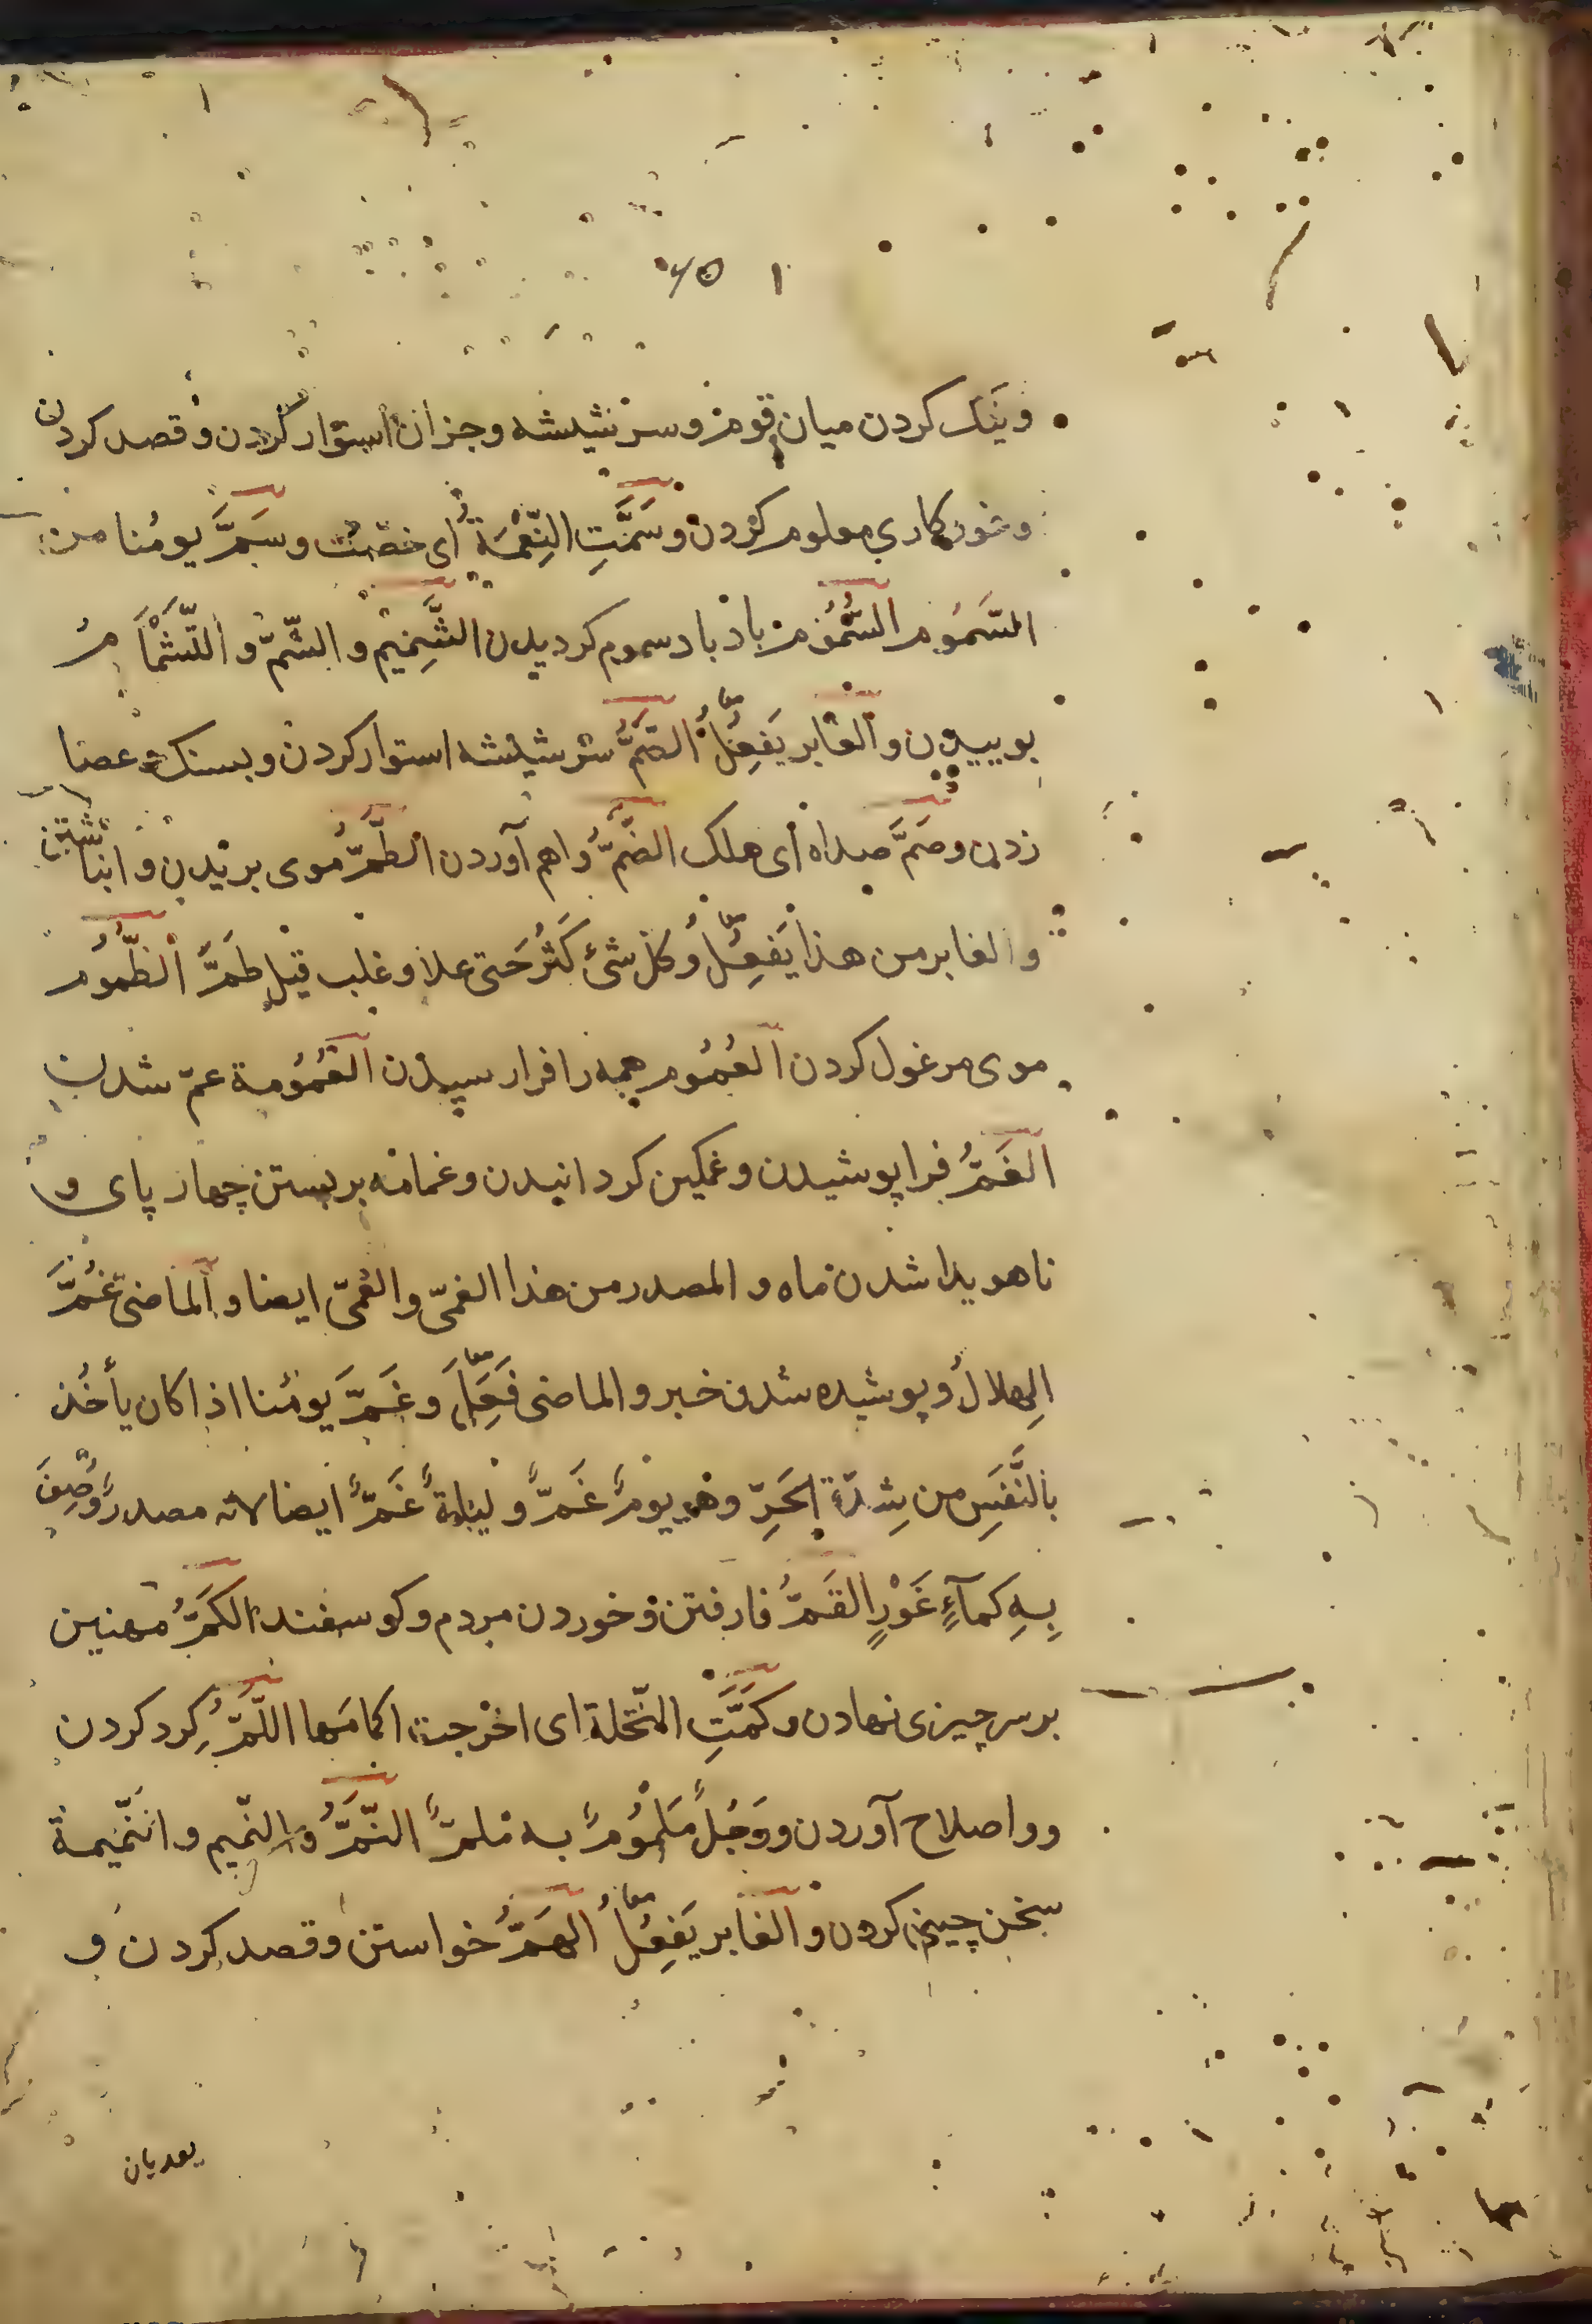 ونیک کردن میان قوم و سر شیشه و جزان استوار کردن و قصد کردن
و خوردکاری معلوم کردن وسَمَّتِ النِّعْمَةُ أی خصّت وسَمَّ یومُنا من
السَّمُوم السُّمُوم باد سموم کردیدن الشَّمِیم و الشَّمّ و
بوییدن و الغابر یَفعِلُ الصَّمُّ سر شیشه استوار کردن و بسنک و عصا
زدن وصَمَّ صداه أی هلک الضَّمُّ واهم آوردن الطَّمُّ موی بریدن و انباشتن
والغابر من هذا یَفعِلُ وکل شیء کَثُرَ حَتی علا و غلب فقیل طَمَّ الطُّمُوم
موی مرغول کردن العُمُوم همه را فرارسیدن العُمُومة عمّ شدن
الغَمُّ فراپوشیدن و غمکین کردانیدن و غمامه بربستن چهار پای و
ناهویدا شدن ماه و المصدر من هذا الغمّی والغُمّی ایضا و الماضی غُمَّ
الهِلالُ و پوشیده شدن خبر و الماضی فَعِلَ وغَمَّ یومُنا اذا کان یأخُذ
بالنَّفَسِ من شِدّة الحَرِّ وهو یومٌ غَمٌّ و لیلةٌ غَمٌّ ایضا لانه مصدر وُصِفَ
بِهِ کمآءٍ غَوْرٍ القَمُّ فارفتن و خوردن مردم و کوسفند الکَمُّ
برسر چیزی نهادن و کَمَّتِ النّخلة ای اخرجت اکمامَها اللَّمُّ کِرد کردن
و واصلاح آوردن و مَلْمُومٌ به النَّمُّ والنَّمیم و النَّمیمة
سخن چینی کردن و الغابر یَفعِلُ الهَمُّ خواستن و قصد کردن و
یعدیان